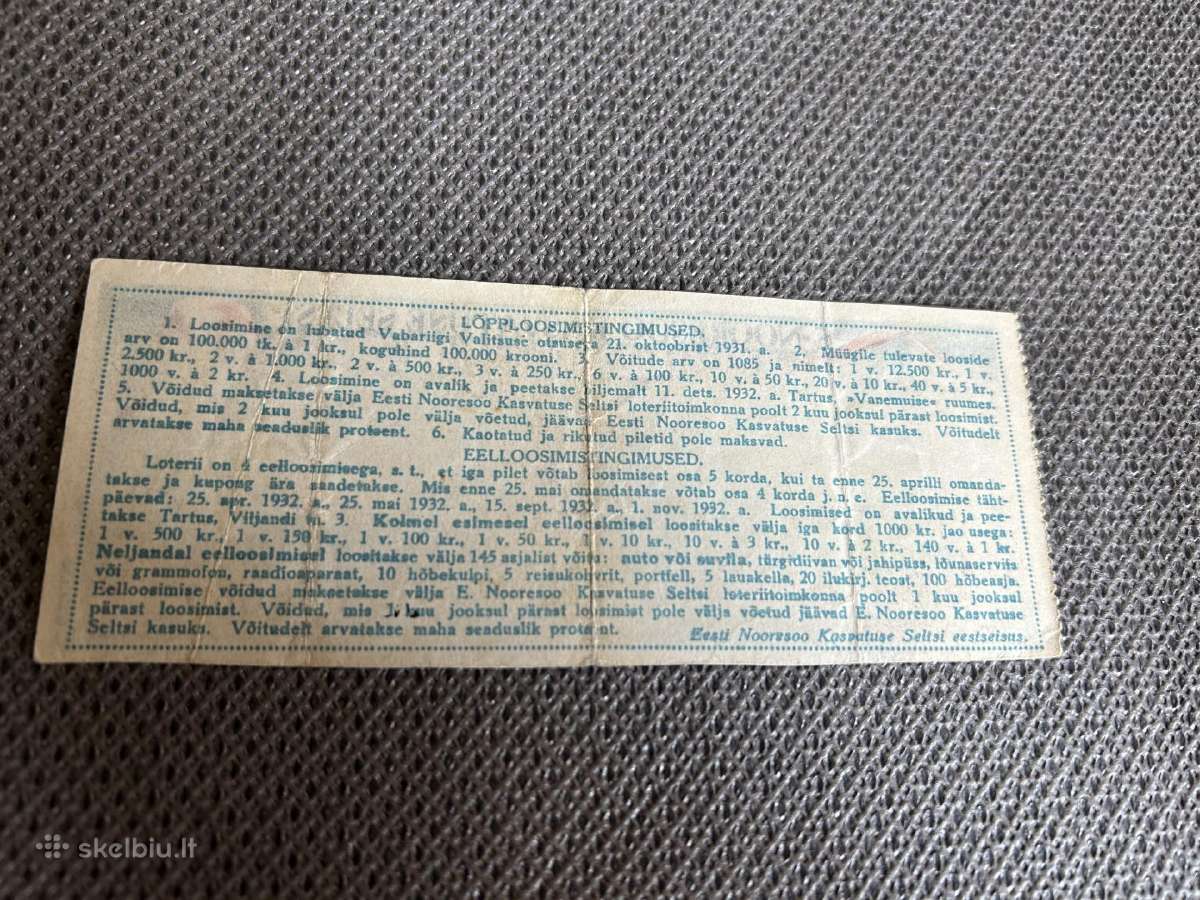 LÕPPLOOSIMISTINGIMUSED.
1. Loosimine on lubatud Vabariigi Valitsuse otsusega 21. oktoobrist 1931. a. 2. Müügile tulevate looside
arv on 100.000 tk. à 1 kr., koguhind 100.000 krooni. 3. Võitude arv on 1085 ja nimelt: 1 v. 12.500 kr., 1 v.
2.500 kr., 2 v. à 1.000 kr., 2 v. à 500 kr., 3 v. à 250 kr., 6 v. à 100 kr., 10 v. à 50 kr., 20 v. à 10 kr., 40 v. à 5 kr.,
1000 v. à 2 kr. 4. Loosimine on avalik ja peetakse hiljemalt 11. dets. 1932. a. Tartus, »Vanemuise« ruumes.
5. Võidud maksetakse välja Eesti Nooresoo Kasvatuse Seltsi loteriitoimkonna poolt 2 kuu jooksul pärast loosimist.
Võidud, mis 2 kuu jooksul pole välja võetud, jäävad Eesti Nooresoo Kasvatuse Seltsi kasuks. Võitudelt
arvatakse maha seaduslik protsent. 6. Kaotatud ja rikutud piletid pole maksvad.
EELLOOSIMISTINGIMUSED.
Loterii on 4 eelloosimisega, s. t., et iga pilet võtab loosimisest osa 5 korda, kui ta enne 25. aprilli omanda-
takse ja kupong ära saadetakse. Mis enne 25. mai omandatakse võtab osa 4 korda j. n. e. Eelloosimise täht-
päevad: 25. apr. 1932. a., 25. mai 1932. a., 15. sept. 1932. a., 1. nov. 1932. a. Loosimised on avalikud ja pee-
takse Tartus, Viljandi t. 3. Kolmel esimesel eelloosimisel loositakse välja iga kord 1000 kr. jao usega:
1 v. 500 kr., 1 v. 150 kr., 1 v. 100 kr., 1 v. 50 kr., 1 v. 10 kr., 10 v. à 3 kr., 10 v. à 2 kr., 140 v. à 1 kr.
Neljandal eelloosimisel loositakse välja 145 asjalist võitu: auto või suvila, türgidiivan või jahipüss, lõunaserviis
või grammofon, raadioaparaat, 10 hõbekulpi, 5 reisukohvrit, portfell, 5 lauakella, 20 ilukirj. teost, 100 hõbeasja.
Eelloosimise võidud maksetakse välja E. Nooresoo Kasvatuse Seltsi loteriitoimkonna poolt 1 kuu jooksul
pärast loosimist. Võidud, mis 1 kuu jooksul pärast loosimist pole välja võetud jäävad E. Nooresoo Kasvatuse
Seltsi kasuks. Võitudelt arvatakse maha seaduslik protsent.
Eesti Nooresoo Kasvatuse Seltsi eestseisus.
skelbiu.lt